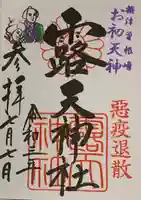 摂津曽根崎
お初天神
露天神社
悪疫退散
令和二年
七月七日
参拝